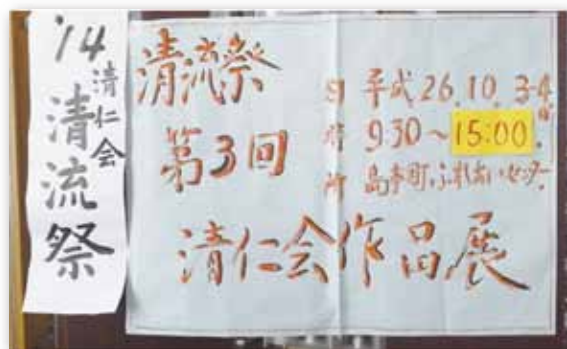 '14
清仁会
清流祭
清流祭
第3回
日 平成26.10.3-4
時 9:30～15:00
所 島本町ふれあいセンター
清仁会作品展